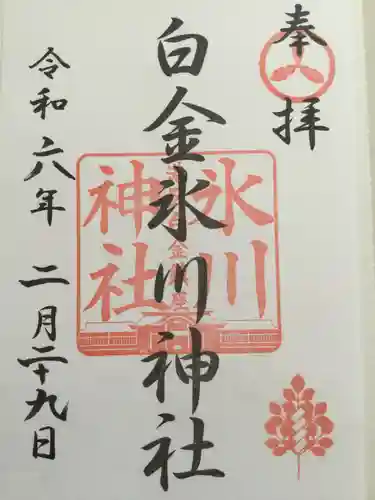 奉拝
白金氷川神社
令和六年二月二十九日
氷川
神社